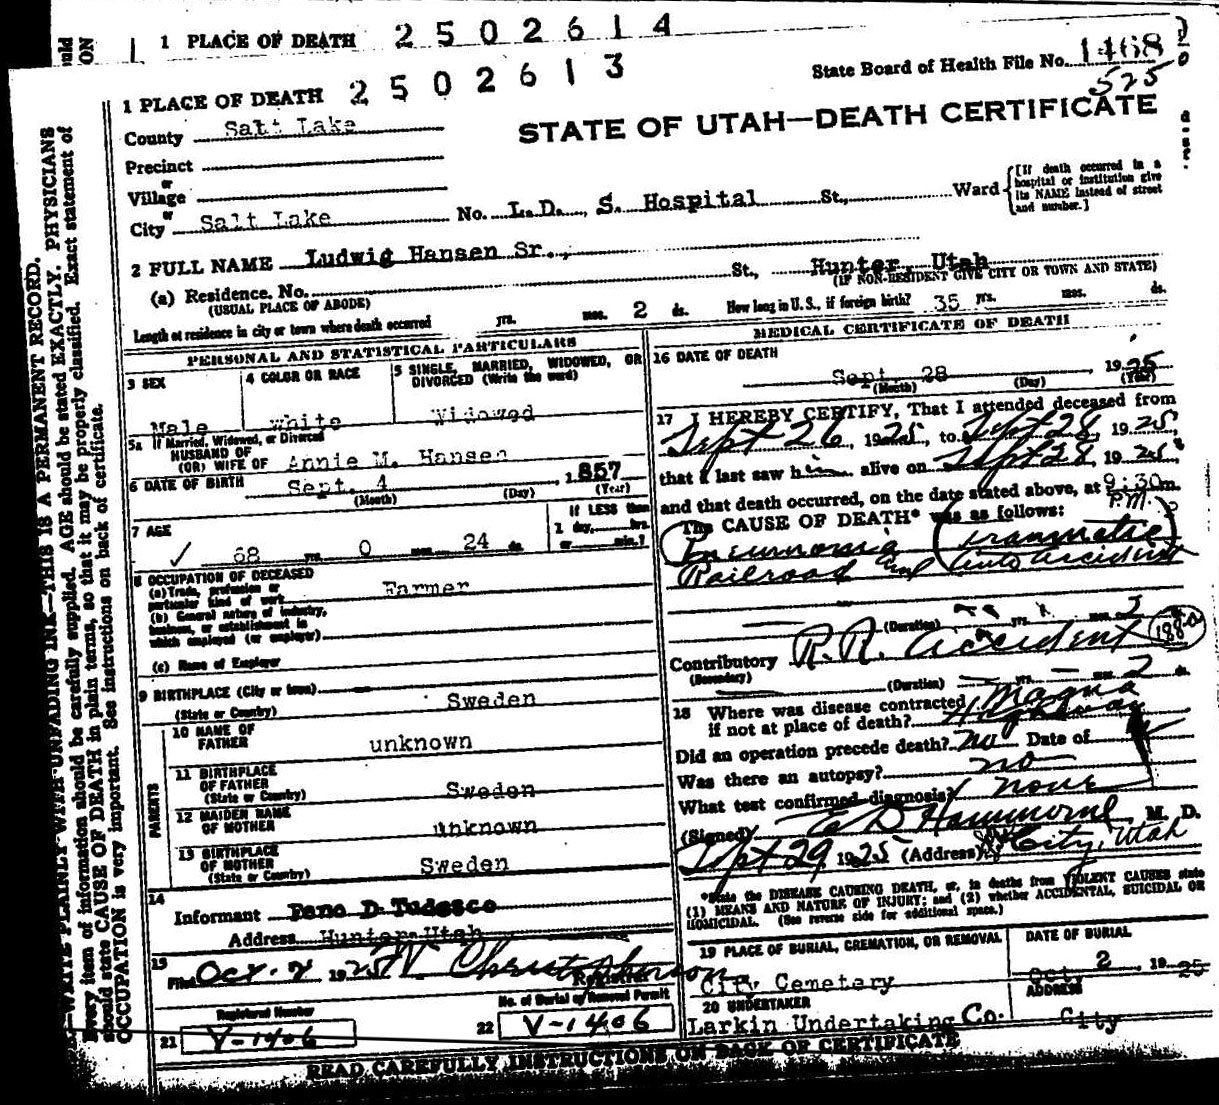 1 PLACE OF DEATH 2502614
1 PLACE OF DEATH 2502613
State Board of Health File No. 1468
525
STATE OF UTAH—DEATH CERTIFICATE
County Salt Lake
Precinct
or
Village
or
City Salt Lake No. L.D. S. Hospital St., Ward
[If death occurred in a hospital or institution give its NAME instead of street and number.]
2 FULL NAME Ludwig Hansen Sr.,
(a) Residence. No. St., Hunter, Utah
(USUAL PLACE OF ABODE) (IF NON-RESIDENT GIVE CITY OR TOWN AND STATE)
Length of residence in city or town where death occurred yrs. mos. 2 ds. How long in U. S., if foreign birth? 35 yrs. mos. ds.
PERSONAL AND STATISTICAL PARTICULARS
3 SEX
Male
4 COLOR OR RACE
White
5 SINGLE, MARRIED, WIDOWED, OR DIVORCED (Write the word)
Widowed
5a If Married, Widowed, or Divorced
HUSBAND OF
(OR) WIFE OF Annie M. Hansen
6 DATE OF BIRTH Sept. 4, 1857
(Month) (Day) (Year)
7 AGE
68 yrs. 0 mos. 24 ds.
If LESS than
1 day, hrs.
or min.?
8 OCCUPATION OF DECEASED
(a) Trade, profession or particular kind of work Farmer
(b) General nature of industry, business, or establishment in which employed (or employer)
(c) Name of Employer
9 BIRTHPLACE (City or town)
(State or Country) Sweden
PARENTS
10 NAME OF FATHER unknown
11 BIRTHPLACE OF FATHER
(State or Country) Sweden
12 MAIDEN NAME OF MOTHER unknown
13 BIRTHPLACE OF MOTHER
(State or Country) Sweden
14
Informant Feno D Tudesco
Address Hunter Utah
15
Filed Oct. 2 1925 W Christopherson
Registrar
Registered Number
21 V-1406
No. of Burial or Removal Permit
22 V-1406
MEDICAL CERTIFICATE OF DEATH
16 DATE OF DEATH
Sept. 28, 1925
(Month) (Day) (Year)
17 I HEREBY CERTIFY, That I attended deceased from
Sept 26, 1925, to Sept 28, 1925,
that I last saw him alive on Sept 28, 1925,
and that death occurred, on the date stated above, at 9:30 m.
P.M.
The CAUSE OF DEATH* was as follows:
Pneumonia (traumatic)
Railroad and Auto accident
(Duration) yrs. mos. 2
Contributory R. R. accident
(Secondary)
(Duration) yrs. mos. 2 ds.
18 Where was disease contracted Magna
if not at place of death? Highway
Did an operation precede death? no Date of
Was there an autopsy? no
What test confirmed diagnosis? none
(Signed) Hammond M. D.
Sept 29 1925 (Address) City, Utah
*State the DISEASE CAUSING DEATH, or, in deaths from VIOLENT CAUSES state
(1) MEANS AND NATURE OF INJURY; and (2) whether ACCIDENTAL, SUICIDAL OR
HOMICIDAL. (See reverse side for additional space.)
19 PLACE OF BURIAL, CREMATION, OR REMOVAL
City Cemetery
DATE OF BURIAL
Oct. 2, 1925
20 UNDERTAKER
Larkin Undertaking Co.
ADDRESS
City
READ CAREFULLY INSTRUCTIONS ON BACK OF CERTIFICATE
WRITE PLAINLY WITH UNFADING INK—THIS IS A PERMANENT RECORD.
Every item of information should be carefully supplied. AGE should be stated EXACTLY. PHYSICIANS
should state CAUSE OF DEATH in plain terms, so that it may be properly classified. Exact statement of
OCCUPATION is very important. See instructions on back of certificate.